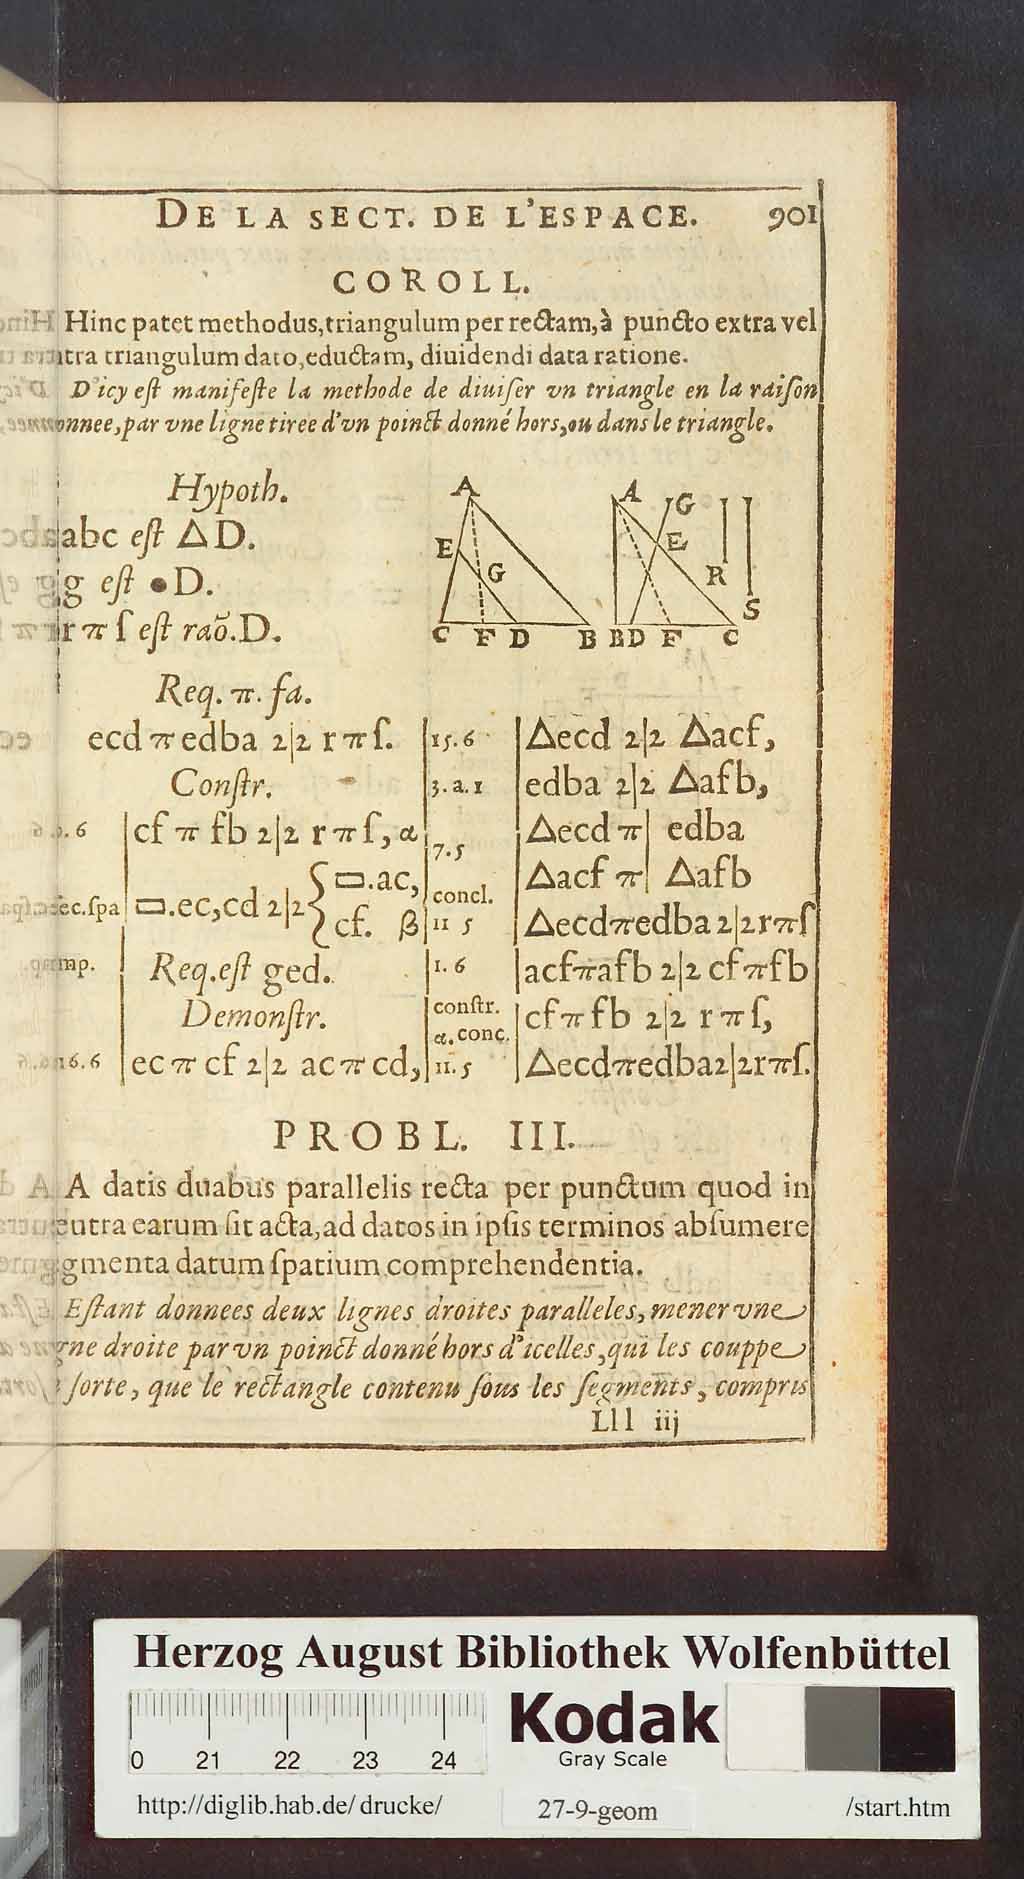 DE LA SECT. DE L'ESPACE. 901
COROLL.
Hinc patet methodus,triangulum per rectam,à puncto extra vel
intra triangulum dato,eductam, diuidendi data ratione.
D'icy eſt manifeſte la methode de diuiſer vn triangle en la raiſon
onnee,par vne ligne tiree d'vn poinct donné hors,ou dans le triangle.
Hypoth.
abc eſt △D.
g eſt •D.
r π ſ eſt raõ.D.
A
E
G
C F D B
A G
E
R
S
B D F C
Req. π. fa.
ecd π edba 2|2 r π ſ.
Conſtr.
6 cf π fb 2|2 r π ſ, α
ec.ſpa ▭.ec,cd 2|2 { ▭.ac,
cf. β
mp. Req.eſt ged.
Demonſtr.
16.6 ec π cf 2|2 ac π cd,
15.6 △ecd 2|2 △acf,
3.a.1 edba 2|2 △afb,
△ecd π| edba
7.5
△acf π| △afb
concl.
11 5 △ecdπedba 2|2rπſ
1.6 acfπafb 2|2 cfπfb
conſtr.
α.conc. cfπfb 2|2 rπſ,
11.5 △ecdπedba2|2rπſ.
PROBL. III.
A datis duabus parallelis recta per punctum quod in
eutra earum ſit acta,ad datos in ipſis terminos abſumere
gmenta datum ſpatium comprehendentia.
Eſtant donnees deux lignes droites paralleles, mener vne
gne droite par vn poinct donné hors d'icelles,qui les couppe
ſorte, que le rectangle contenu ſous les ſegments, compris
Lll iij
Herzog August Bibliothek Wolfenbüttel
0 21 22 23 24
Kodak
Gray Scale
http://diglib.hab.de/drucke/ 27-9-geom /start.htm